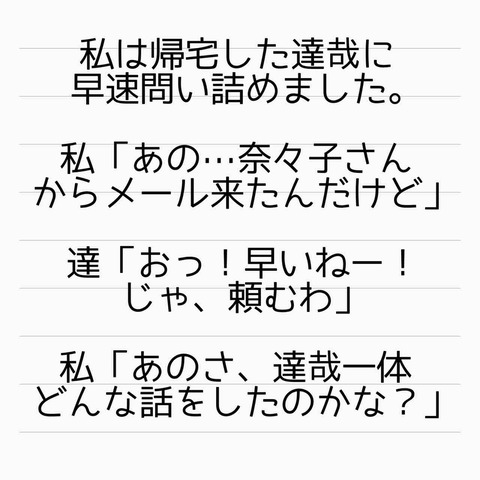 私は帰宅した達哉に
早速問い詰めました。
私「あの…奈々子さん
からメール来たんだけど」
達「おっ！早いねー！
じゃ、頼むわ」
私「あのさ、達哉一体
どんな話をしたのかな？」